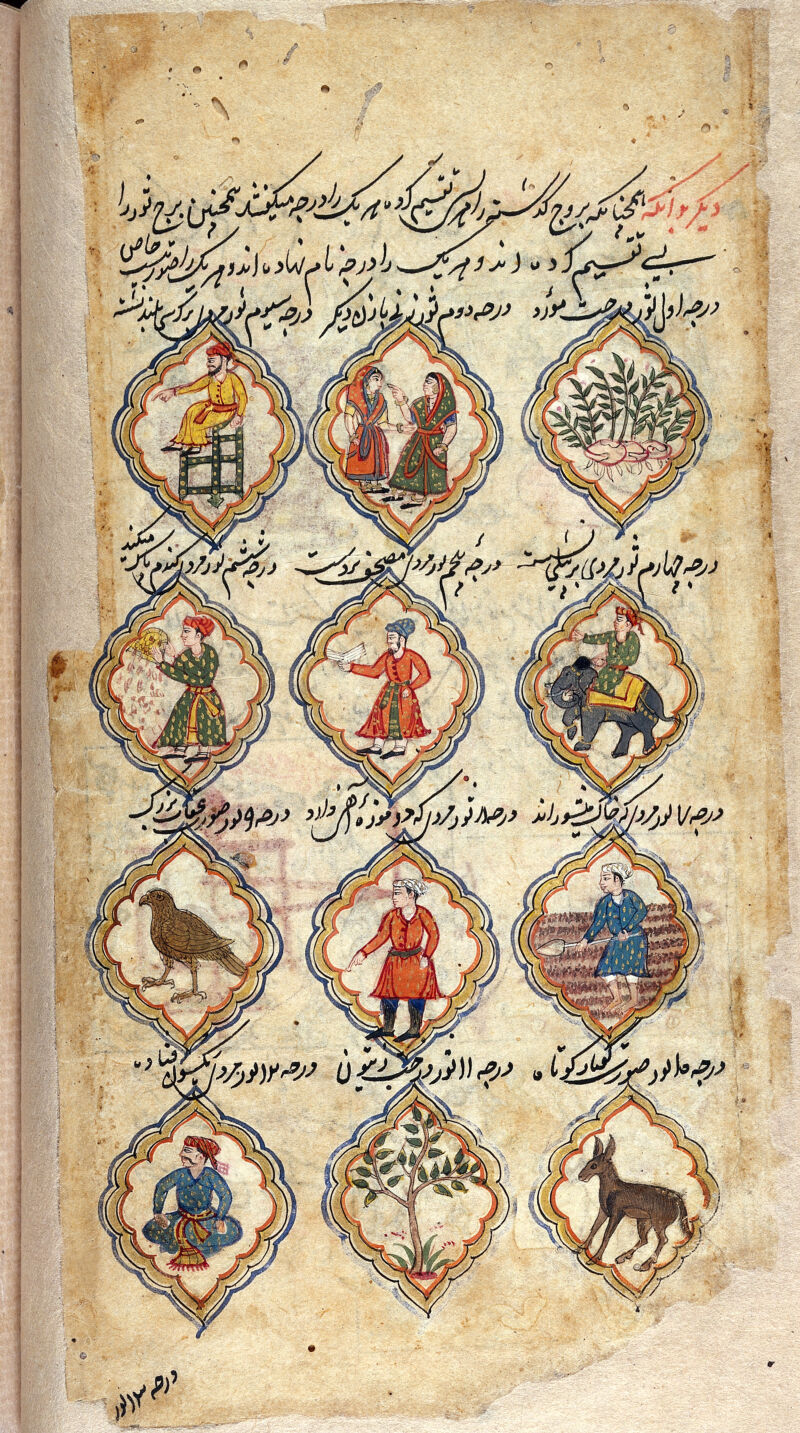 دیگر بدانکه همچنانکه بروج گذشته را بسی تقسیم کرده هر یک را درجه میگفتند همچنین برج ثور را
بسی تقسیم کرده اند و هر یک را درجه نام نهاده اند و هر یک را صورتیست خاص
درجه اول ثور درخت مورد
درجه دوم ثور زنی با زن دیگر
درجه سیوم ثور مردی بر کرسی بلند نشسته
درجه چهارم ثور مردی بر پیلی نشسته
درجه پنجم ثور مردی مصحف بر دست
درجه ششم ثور مردی گندم پاک میکند
درجه ۷ ثور مردی که خاک میشوراند
درجه ۸ ثور مردی که دو موزه آهن فولاد
درجه ۹ ثور صورت عقاب بزرگ
درجه ۱۰ ثور صورت کوتاه
درجه ۱۱ ثور درخت زیتون
درجه ۱۲ ثور مردی
درجه ۱۳ ثور